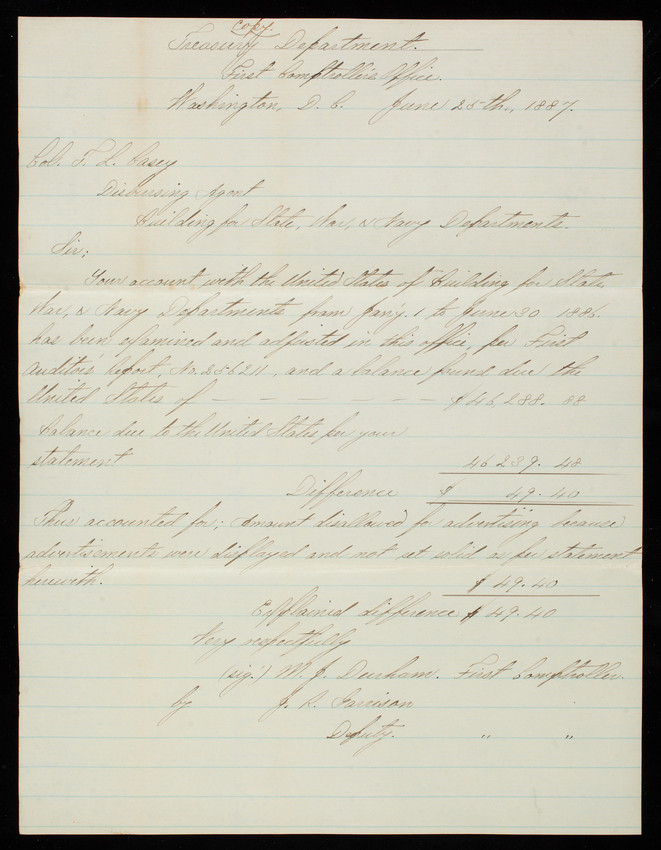 copy.
Treasury Department.
First Comptroller's Office.
Washington, D. C. June 25th, 1887.
Col. T. L. Casey
Disbursing Agent
Building for State, War, & Navy Departments.
Sir:
Your account with the United States of "Building for State,
War, & Navy Departments from Jan'y. 1 to June 30 1886.
has been examined and adjusted in this office, per First
Auditor's report, No. 256211, and a balance found due the
United States of — — — — — — — $46,288. 88
Balance due to the United States, per your
statement 46 239. 48
Difference $ 49. 40
Thus accounted for; Amount disallowed for advertising because
advertisements were displayed and not set solid as per statement
herewith. $ 49.40
Explained difference $ 49.40
Very respectfully
(sig.) M. J. Durham. First Comptroller.
by J. R. Garrison
Deputy. " "